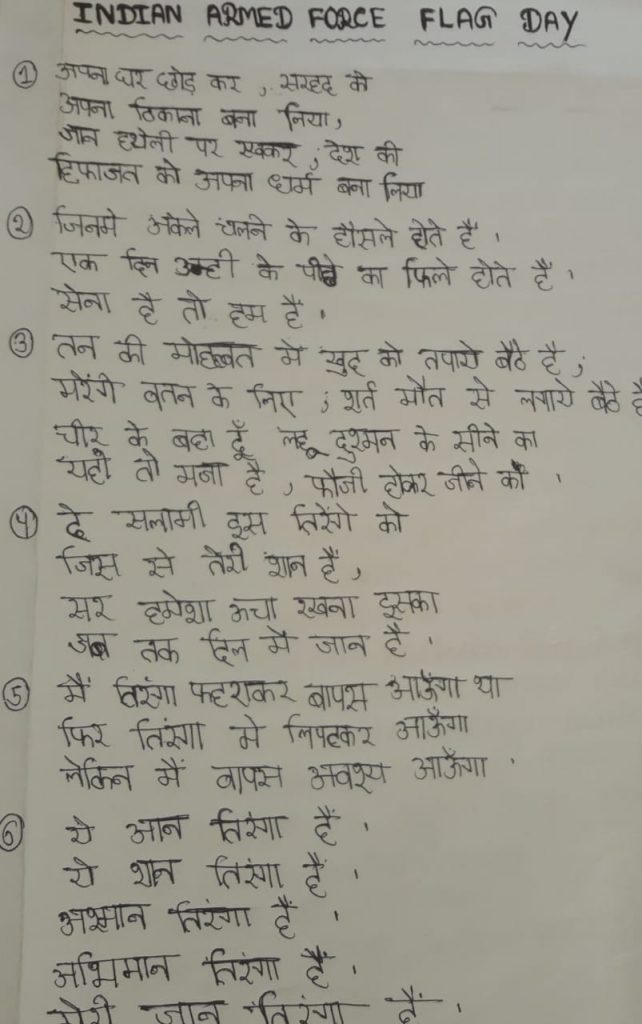 INDIAN ARMED FORCE FLAG DAY
① अपना घर छोड़ कर, सरहद को
अपना ठिकाना बना लिया,
जान हथेली पर रखकर, देश की
हिफाजत को अपना धर्म बना लिया
② जिनमे अकेले चलने के हौसले होते हैं।
एक दिन उन्ही के पीछे काफिले होते हैं।
सेना है तो हम हैं।
③ तन की मोहब्बत में खुद को तपाये बैठे है,
मरेंगे वतन के लिए, शर्त मौत से लगाये बैठे है
चीर के बहा दूँ लहू दुश्मन के सीने का
यही तो मजा है, फौजी होकर जीने का।
④ दे सलामी इस तिरंगे को
जिस से तेरी शान हैं,
सर हमेशा ऊचा रखना इसका
जब तक दिल मे जान है।
⑤ मैं तिरंगा फहराकर वापस आऊँगा या
फिर तिरंगा मे लिपटकर आऊँगा
लेकिन मैं वापस अवश्य आऊँगा।
⑥ ये आन तिरंगा हैं।
ये शान तिरंगा हैं।
अरमान तिरंगा हैं।
अभिमान तिरंगा हैं।
मेरी जान तिरंगा हैं।